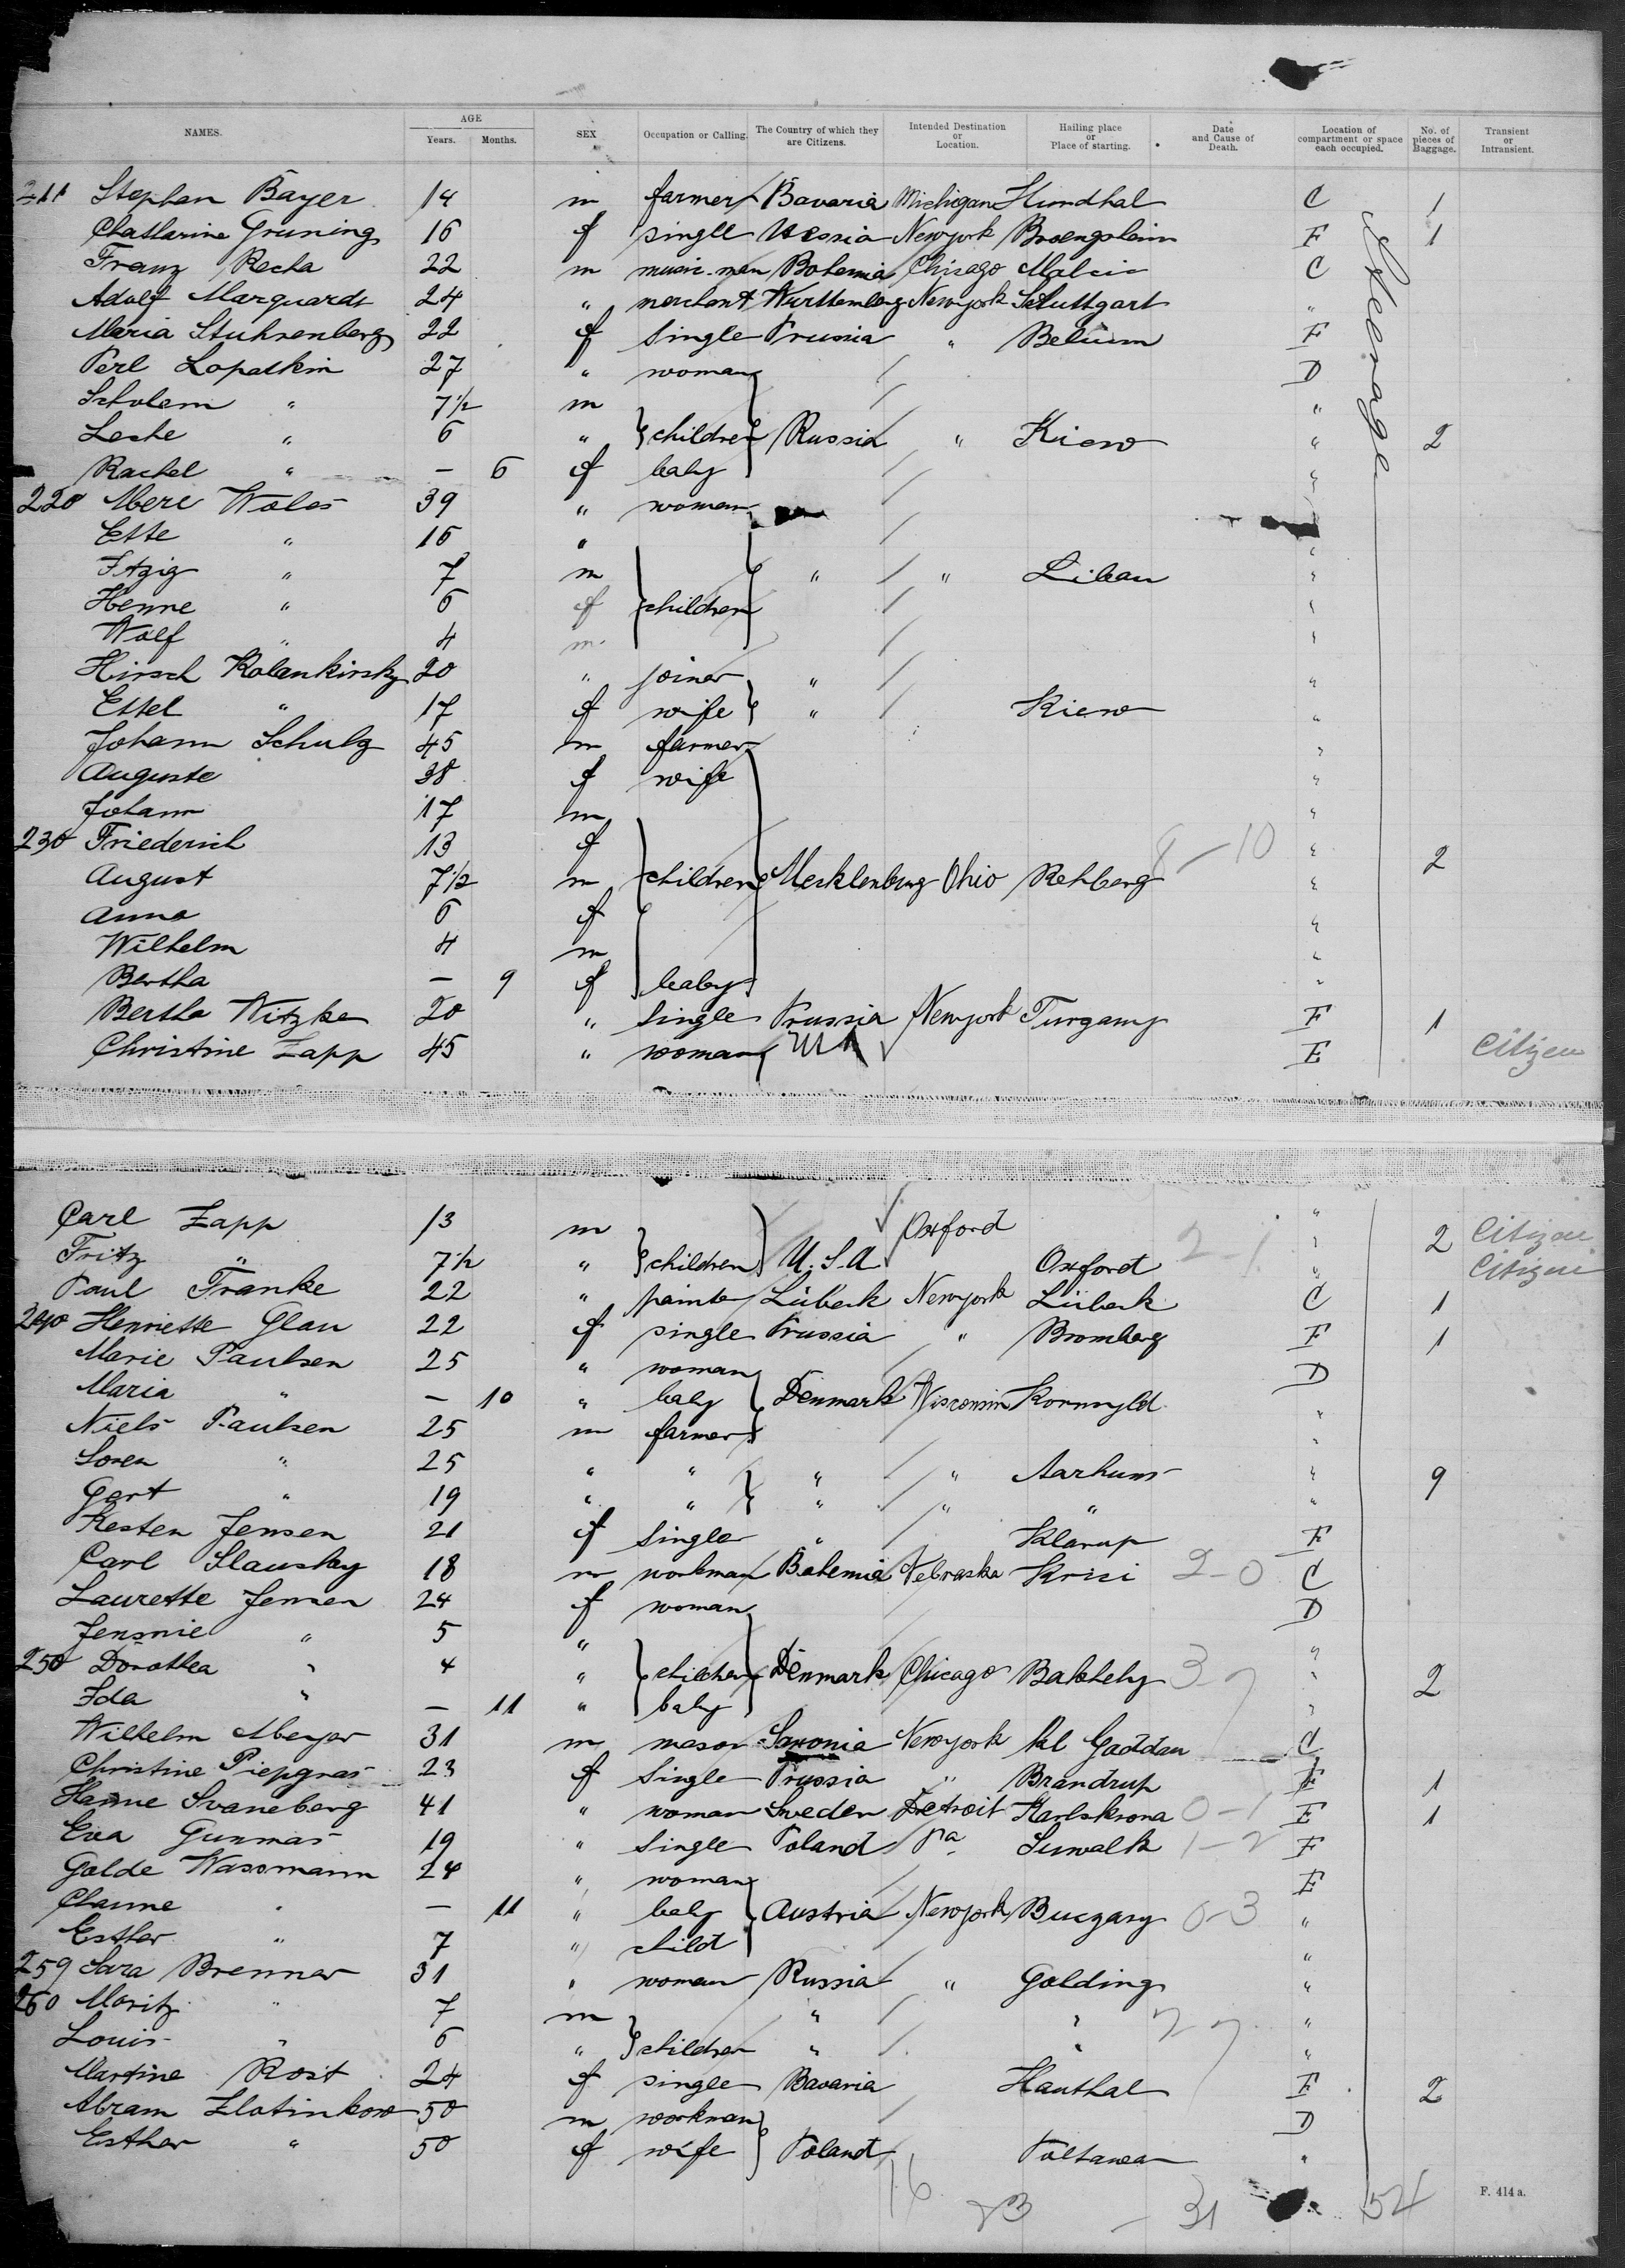 NAMES. AGE Years. Months. SEX Occupation or Calling. The Country of which they are Citizens. Intended Destination or Location. Hailing place or Place of starting. Date and Cause of Death. Location of compartment or space each occupied. No. of pieces of Baggage. Transient or Intransient.
211 Stephan Bayer 14 m farmer Bavaria Michigan Hundhal C 1
Chatharine Gruning 16 f single Hessia Newyork F 1
Franz Recha 22 m music-man Bohemia Chicago C
Adolf Marquardt 24 " merchant Wurttemberg Newyork Stuttgart "
Maria Stuhrenberg 22 f Single Prussia " Belium F
Perl Lopatkin 27 " woman D
Scholem " 7 1/2 m "
Leche " 6 " children Russia " Kiew " 2
Rachel " — 6 f baby "
220 Mere Wolos 39 " woman
Ette " 16 " "
Itzig " 7 m " " Libau "
Henne " 6 f children "
Wolf " 4 m "
Hirsch Kolankirsky 20 " joiner " "
Ettel " 17 f wife " Kiew "
Johann Schulz 45 m farmer "
Auguste 38 f wife "
Johann 17 m "
230 Friederich 13 f 8-10 "
August 7 1/2 m children Mecklenburg Ohio Rehberg " 2
Anna 6 f "
Wilhelm 4 m "
Bertha — 9 f baby "
Bertha Witzke 20 " Single Prussia Newyork Turgany F 1
Christine Zapp 45 " woman E Citizen
Steerage
Carl Zapp 13 m Oxford " 2 Citizen
Fritz " 7 1/2 " children U.S.A Oxford 2-1 " Citizen
Paul Franke 22 " painter Lübeck Newyork Lübeck C 1
240 Henriette Glau 22 f single Prussia " Bromberg F 1
Marie Paulsen 25 " woman D
Maria " — 10 " baby Denmark Wisconsin "
Niels Paulsen 25 m farmer "
Soren " 25 " " " " Aarhuus " 9
Gert " 19 " " " " " "
Kesten Jensen 21 f Single " Klarup F
Carl Slausky 18 m workman Bohemia Nebraska Krisi 2-0 C
Laurette Jensen 24 f woman D
Jensmie " 5 " "
250 Dorothea " 4 " children Denmark Chicago 3-7 " 2
Ida " — 11 " baby "
Wilhelm Meyer 31 m mason Saxonia Newyork Kl Gaddau C
Christine Piepgras 23 f Single Prussia " Brandrup F 1
Hanne Svaneberg 41 " woman Sweden Detroit Karlskrona 0-1 E 1
Eva Gunmas 19 " Single Poland Pa Suwalk 1-2 F
Golde Wassmann 24 " woman E
Channe " — 11 " baby Austria Newyork Buczary 0-3 "
Esther " 7 " child "
259 Sara Brenner 31 " woman Russia " Golding "
260 Moritz " 7 m " " 2-7 "
Louis " 6 " children " " "
Martine Rost 24 f single Bavaria Hauthal F 2
Abram Zlotinkow 50 m workman D
Esther " 50 f wife Poland Poltawa "
16 23 - 31 54
F. 414 a.